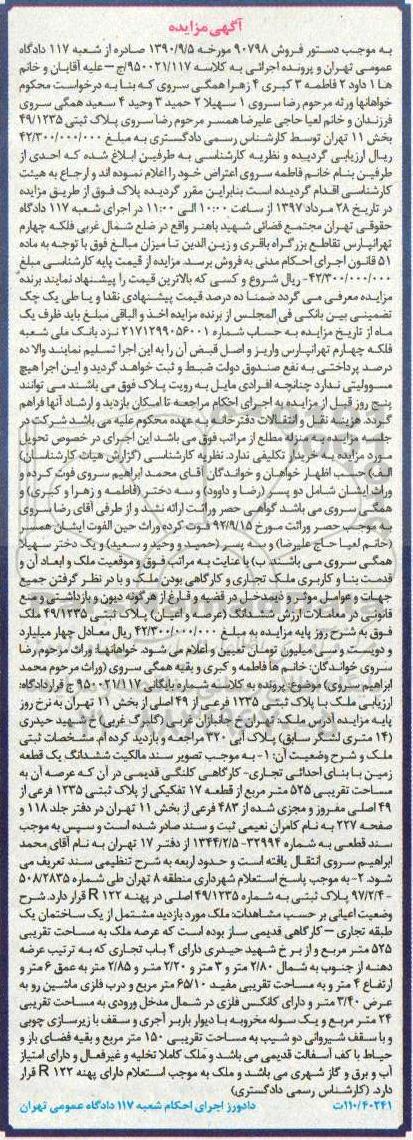 آگهی مزایده
به موجب دستور فروش ۹۰۷۹۸ مورخه ۱۳۹۰/۹/۵ صادره از شعبه ۱۱۷ دادگاه
عمومی تهران و پرونده اجرائی به کلاسه ۹۵۰۰۲۱/۱۱۷/ج – علیه آقایان و خانم
ها ۱ داود ۲ فاطمه ۳ کبری ۴ زهرا همگی سروی که بنا به درخواست محکوم
خواهانها ورثه مرحوم رضا سروی ۱ سهیلا ۲ حمید ۳ وحید ۴ سعید همگی سروی
فرزندان و خانم لعیا حاجی علیرضا همسر مرحوم رضا سروی پلاک ثبتی ۴۹/۱۲۳۵
بخش ۱۱ تهران توسط کارشناس رسمی دادگستری به مبلغ ۴۲/۳۰۰/۰۰۰/۰۰۰
ریال ارزیابی گردیده و نظریه کارشناسی به طرفین ابلاغ شده که احدی از
طرفین بنام خانم فاطمه سروی اعتراض خود را اعلام نموده اند و ارجاع به هیئت
کارشناسی اقدام گردیده است بنابراین مقرر گردیده پلاک فوق از طریق مزایده
در تاریخ ۲۸ مرداد ۱۳۹۷ از ساعت ۱۰:۰۰ الی ۱۱:۰۰ در اجرای شعبه ۱۱۷ دادگاه
حقوقی تهران مجتمع قضائی شهید باهنر واقع در ضلع شمال غربی فلکه چهارم
تهرانپارس تقاطع بزرگراه باقری و زین الدین تا میزان مبالغ فوق با توجه به ماده
۵۱ قانون اجرای احکام مدنی به فروش برسد. مزایده از قیمت پایه کارشناسی مبلغ
۴۲/۳۰۰/۰۰۰/۰۰۰- ریال شروع و کسی که بالاترین قیمت را پیشنهاد نمایند برنده
مزایده معرفی می گردد ضمنا ده درصد قیمت پیشنهادی نقدا و یا طی یک چک
تضمینی بین بانکی فی المجلس از برنده مزایده اخذ و الباقی مبلغ باید ظرف یک
ماه از تاریخ مزایده به حساب شماره ۲۱۷۱۲۹۹۰۵۶۰۰۱ نزد بانک ملی شعبه
فلکه چهارم تهرانپارس واریز و اصل قبض آن را به این اجرا تسلیم نمایند والا ده
درصد پرداختی به نفع صندوق دولت ضبط و ثبت خواهد گردید و این اجرا هیچ
مسوولیتی ندارد چنانچه افرادی مایل به رویت پلاک فوق می باشند می توانند
پنج روز قبل از مزایده به اجرای احکام مراجعه تا امکان بازدید و ارشاد آنها فراهم
گردد. هزینه نقل و انتقالات دفترخانه به عهده محکوم علیه می باشد شرکت در
جلسه مزایده به منزله مطلع از مراتب فوق می باشد این اجرای در خصوص تحویل
مورد مزایده به خریدار تکلیفی ندارد. نظریه کارشناسی (گزارش هیات کارشناسان)
الف) حسب اظهار خواهان و خواندگان آقای محمد ابراهیم سروی فوت کرده و
وراث ایشان شامل دو پسر (رضا و داوود) و سه دختر (فاطمه و زهرا و کبری) و
همگی سروی می باشد گواهی حصر وراثت ارائه نشد و از طرفی آقای رضا سروی
به موجب حصر وراثت مورخ ۹۲/۹/۱۵ فوت کرده وراث حین الفوت ایشان همسر
(خانم لعیا حاج علیرضا) و سه پسر (حمید و وحید و سعید) و یک دختر سهیلا
همگی سروی می باشند ب) با عنایت به مراتب فوق و موقعیت ملک و ابعاد آن و
قدمت بنا و کاربری ملک تجاری و کارگاهی بودن ملک و با در نظر گرفتن جمیع
جهات و عوامل موثر و ذیمدخل در قضیه و فارغ از هرگونه دیون و بازداشتی و منع
قانونی در معاملات ارزش ششدانگ (عرصه و اعیان) پلاک ثبتی ۴۹/۱۲۳۵ ملک
فوق به شرح روز پایه مزایده به مبلغ ۴۲/۳۰۰/۰۰۰/۰۰۰ ریال معادل چهار میلیارد
و دویست و سی میلیون تومان تعیین و اعلام می شود. خواهانها: وراث مرحوم رضا
سروی خواندگان: خانم ها فاطمه و کبری و بقیه همگی سروی (وراث مرحوم محمد
ابراهیم سروی) موضوع: پرونده به کلاسه شماره بایگانی ۹۵۰۰۲۱/۱۱۷ ج قرار دادگاه:
ارزیابی ملک با پلاک ثبتی ۱۲۳۵ فرعی از ۴۹ اصلی از بخش ۱۱ تهران به نرخ روز
پایه مزایده آدرس ملک: تهران خ جانبازان غربی (گلبرگ غربی) خ شهید حیدری
(۱۴ متری لشگر سابق) پلاک آبی ۳۲۰ مراجعه و بازدید کرده ام. مشخصات ثبتی
ملک و شرح وضعیت آن: ۱- به موجب تصویر سند مالکیت ششدانگ یک قطعه
زمین با بنای احداثی تجاری- کارگاهی کلنگی قدیمی در آن که عرصه آن به
مساحت تقریبی ۵۲۵ متر مربع از قطعه ۱۷ تفکیکی از پلاک ثبتی ۱۲۳۵ فرعی از
۴۹ اصلی مفروز و مجزی شده از ۴۸۳ فرعی از بخش ۱۱ تهران در دفتر جلد ۱۱۸ و
صفحه ۲۲۷ به نام کامران نعیمی ثبت و سند صادر شده است و سپس به موجب
سند قطعی به شماره ۳۲۹۹۴- ۱۳۴۴/۲/۵ از دفتر ۱۷ تهران به نام آقای محمد
ابراهیم سروی انتقال یافته است و حدود اربعه به شرح تنظیمی سند تعریف می
شود. ۲- به موجب پاسخ استعلام شهرداری منطقه ۸ تهران طی شماره ۵۰۸/۲۸۳۵
- ۹۷/۲/۴ پلاک ثبتی به شماره ۴۹/۱۲۳۵ اصلی در پهنه R ۱۲۲ قرار دارد. شرح
وضعیت اعیانی بر حسب مشاهدات: ملک مورد بازدید مشتمل از یک ساختمان یک
طبقه تجاری – کارگاهی قدیمی ساز بوده است که عرصه ملک به مساحت تقریبی
۵۲۵ متر مربع و از بر خ شهید حیدری دارای ۴ باب تجاری که به ترتیب عرضه
دهنه از جنوب به شمال ۲/۸۰ متر و ۳ متر و ۲/۲۰ متر و ۲/۸۵ متر به عمق ۶ متر و
ارتفاع ۴ متر و به مساحت تقریبی مفید ۶۵/۱۰ متر مربع و درب فلزی ماشین رو به
عرض ۳/۴۰ متر و دارای کانکس فلزی در شمال مدخل ورودی به مساحت تقریبی
۲۴ متر مربع و یک سوله مخروبه با دیوار باربر آجری و سقف با زیرسازی چوبی
و با سقف شیروانی دو شیب به مساحت تقریبی ۱۵۰ متر مربع و بقیه فضای باز و
حیاط با کف آسفالت قدیمی می باشد و ملک کاملا تخلیه و غیرفعال و دارای امتیاز
آب و برق و گاز شهری می باشد و ملک به موجب استعلام دارای پهنه R ۱۲۲ قرار
دارد. (کارشناس رسمی دادگستری)
۱۱۰/۴۰۲۴۱ت دادورز اجرای احکام شعبه ۱۱۷ دادگاه عمومی تهران